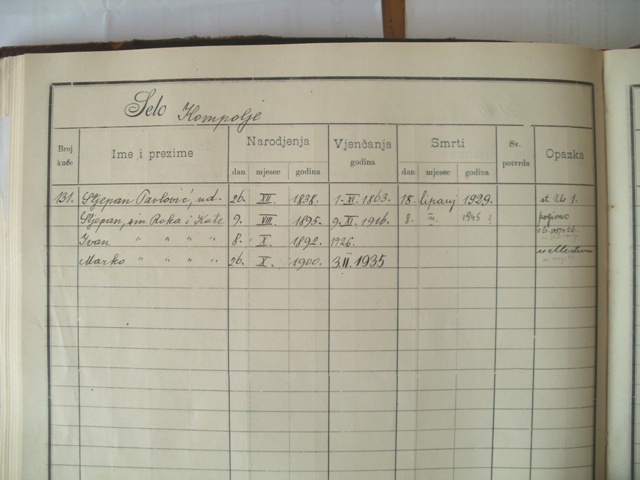 Selo Kompolje
Broj kuće Ime i prezime Narodjenja Vjenčanja godina Smrti Sv. potvrda Opazka
dan mjesec godina dan mjesec godina
131. Stjepan Pavlović, ud. 26. XII. 1838. 1. VI. 1863. 18. lipanj 1929. 1.
Stjepan, sin Roka i Kate 9. VIII. 1895. 9. VI. 1916. 8. 1945
Ivan " " " " 8. X. 1892. 1926.
Marko " " " " 26. X. 1900. 3.II.1935